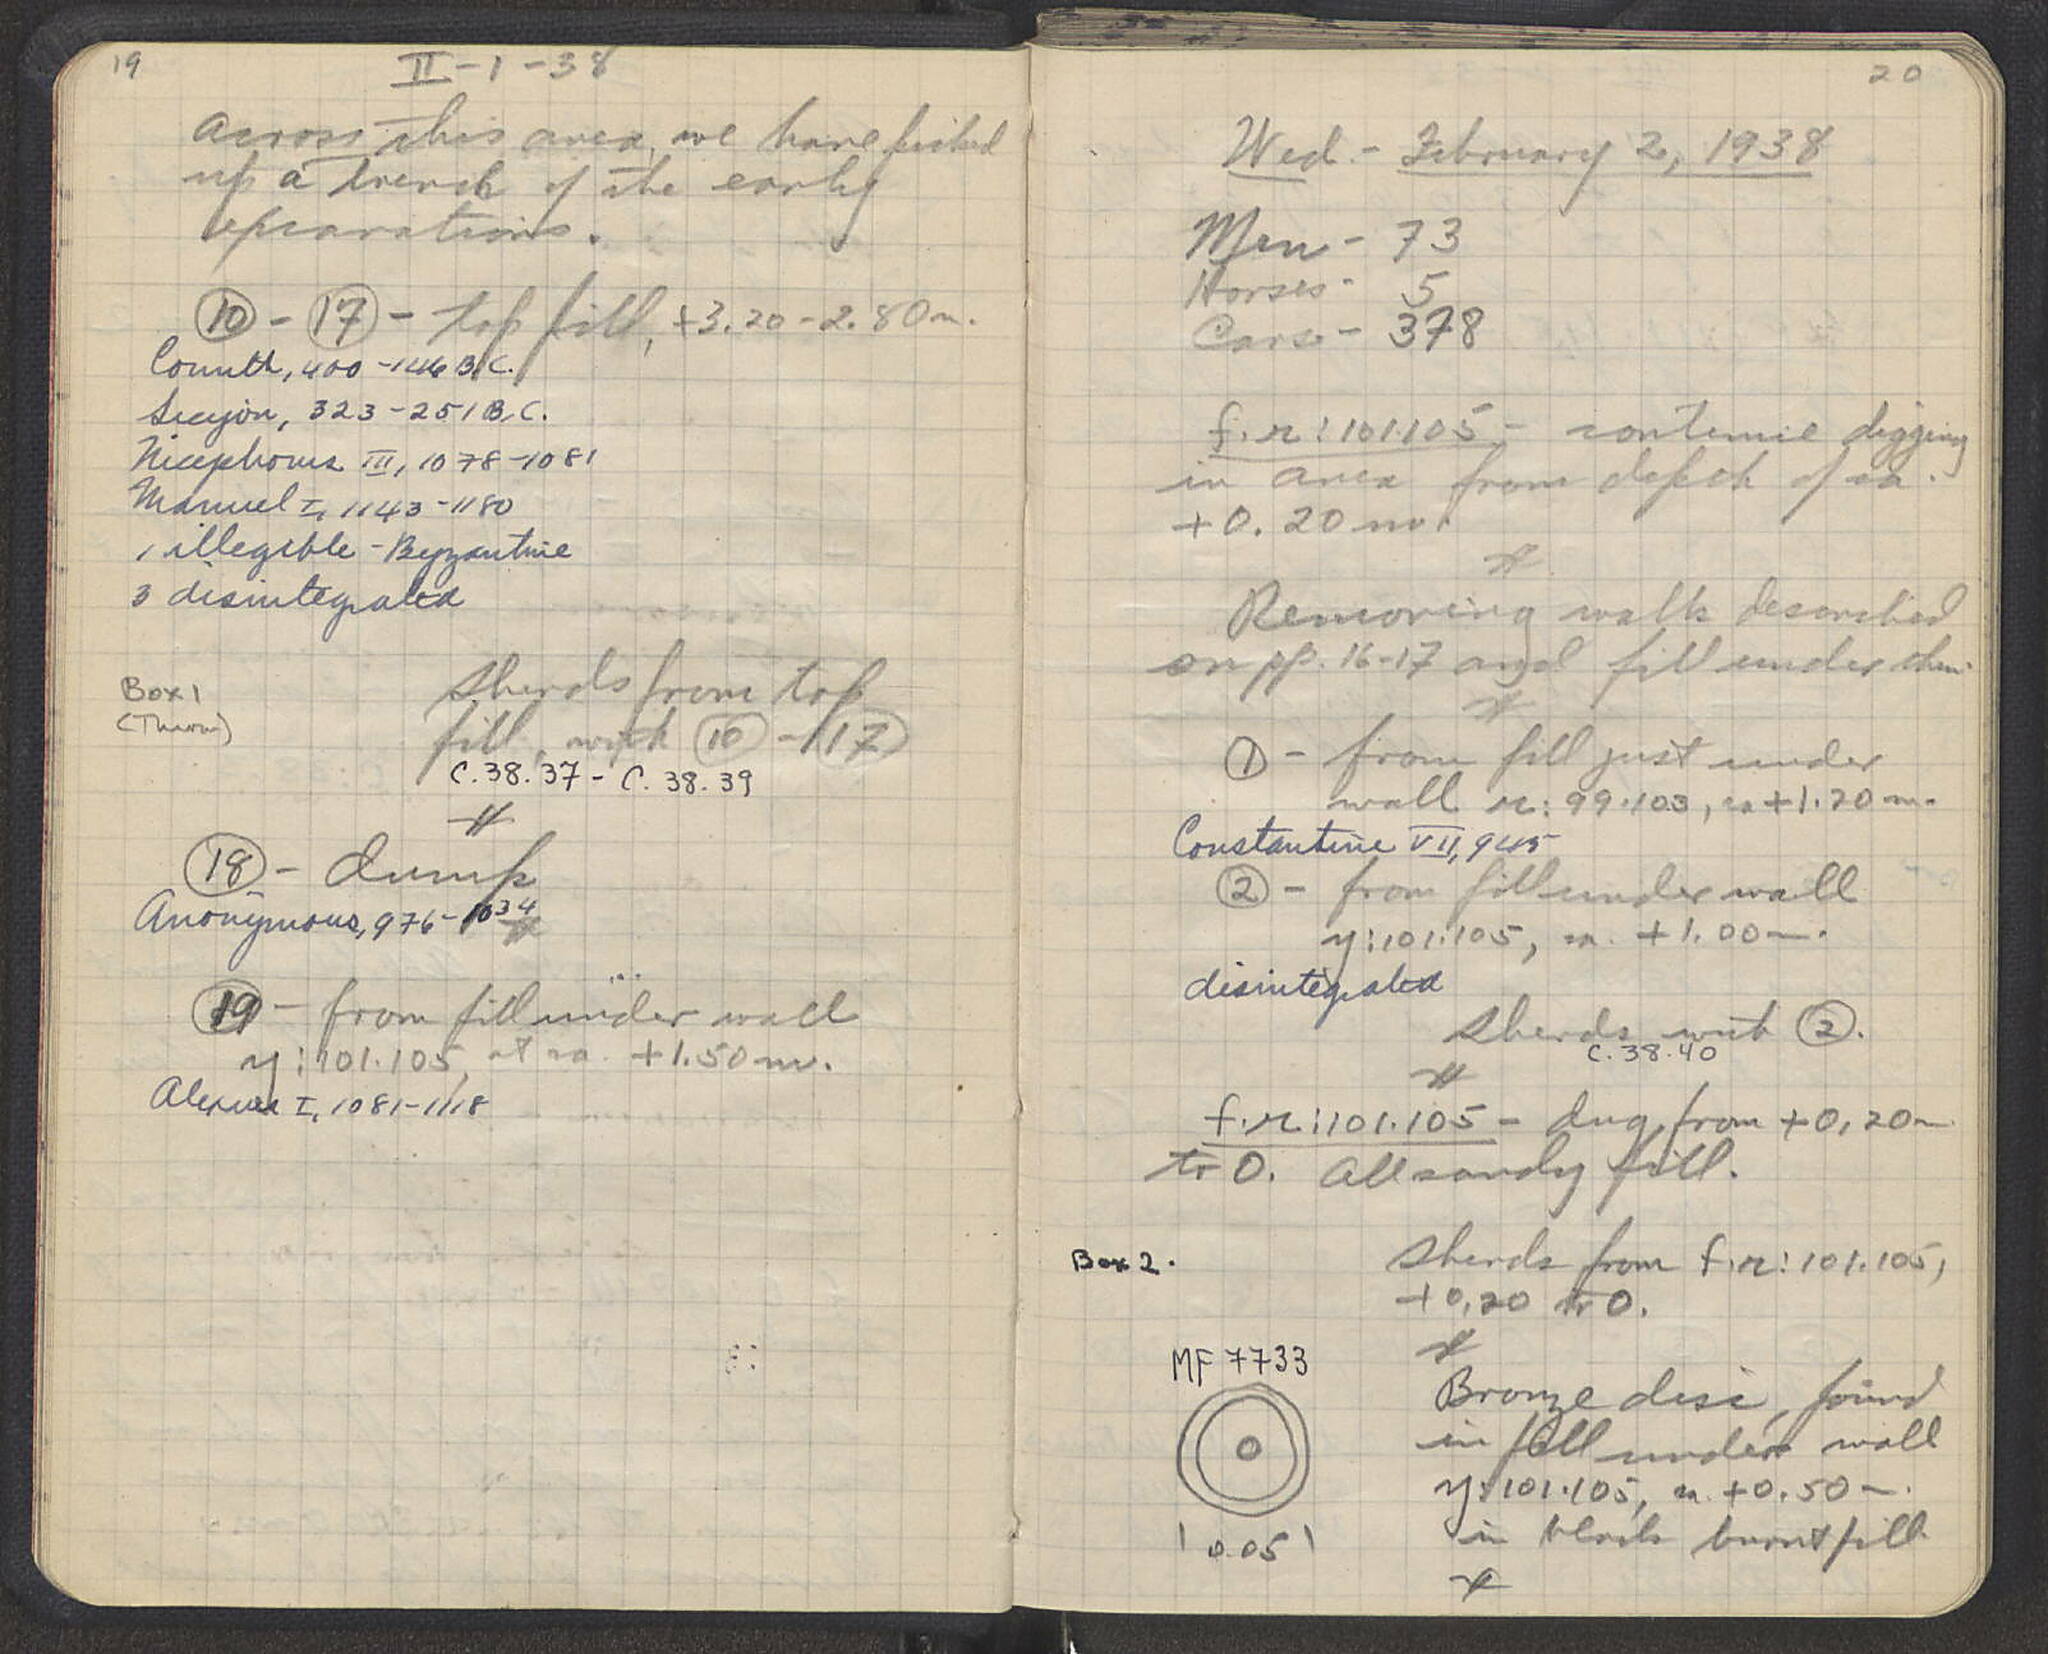 19
II-1-38
Across this area, we have picked
up a trench of the early
excavations.
⑩ - ⑰ - top fill, +3.20-2.80m.
Corinth, 400-146 B.C.
Sicyon, 323-251 B.C.
Nicephorus III, 1078-1081
Manuel I, 1143-1180
1 illegible - Byzantine
3 disintegrated
Box 1
(Thrown)
Sherds from top
fill, with ⑩ - ⑰
C.38.37 - C.38.39
⑱ - dump
Anonymous, 976-1034
⑲ - from fill under wall
y:101.105, at ca. +1.50m.
Alexius I, 1081-1118
20
Wed - February 2, 1938
Men - 73
Horses - 5
Cars - 378
f.r:101.105 - continue digging
in area from depth of ca.
+0.20m.
Removing walls described
on pp. 16-17 and fill under them
① - from fill just under
wall r:99.103, ca +1.20m.
Constantine VII, 945
② - from fill under wall
y:101.105, ca. +1.00m.
disintegrated
Sherds with ②.
C.38.40
f.r:101.105 - dug from +0.20m
to 0. All sandy fill.
Box 2.
Sherds from f.r:101.105,
+0.20 to 0.
MF 7733
0.05
Bronze disc, found
in fill under wall
y:101.105, ca. +0.50m.
in black burnt fill